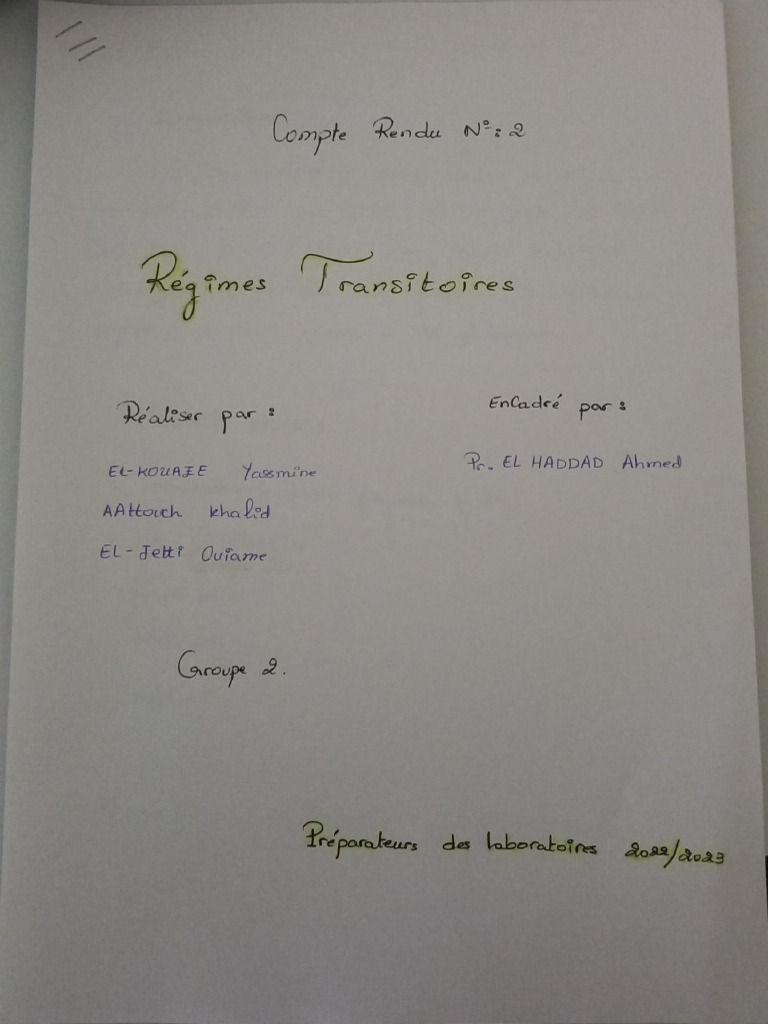 Compte Rendu N°: 2
Régimes Transitoires
Réaliser par :
Encadré par :
EL-KOUAIE Yassmine
Pr. EL HADDAD Ahmed
AAttouch khalid
EL-Jetti Ouiame
Groupe 2.
Préparateurs des laboratoires 2022/2023